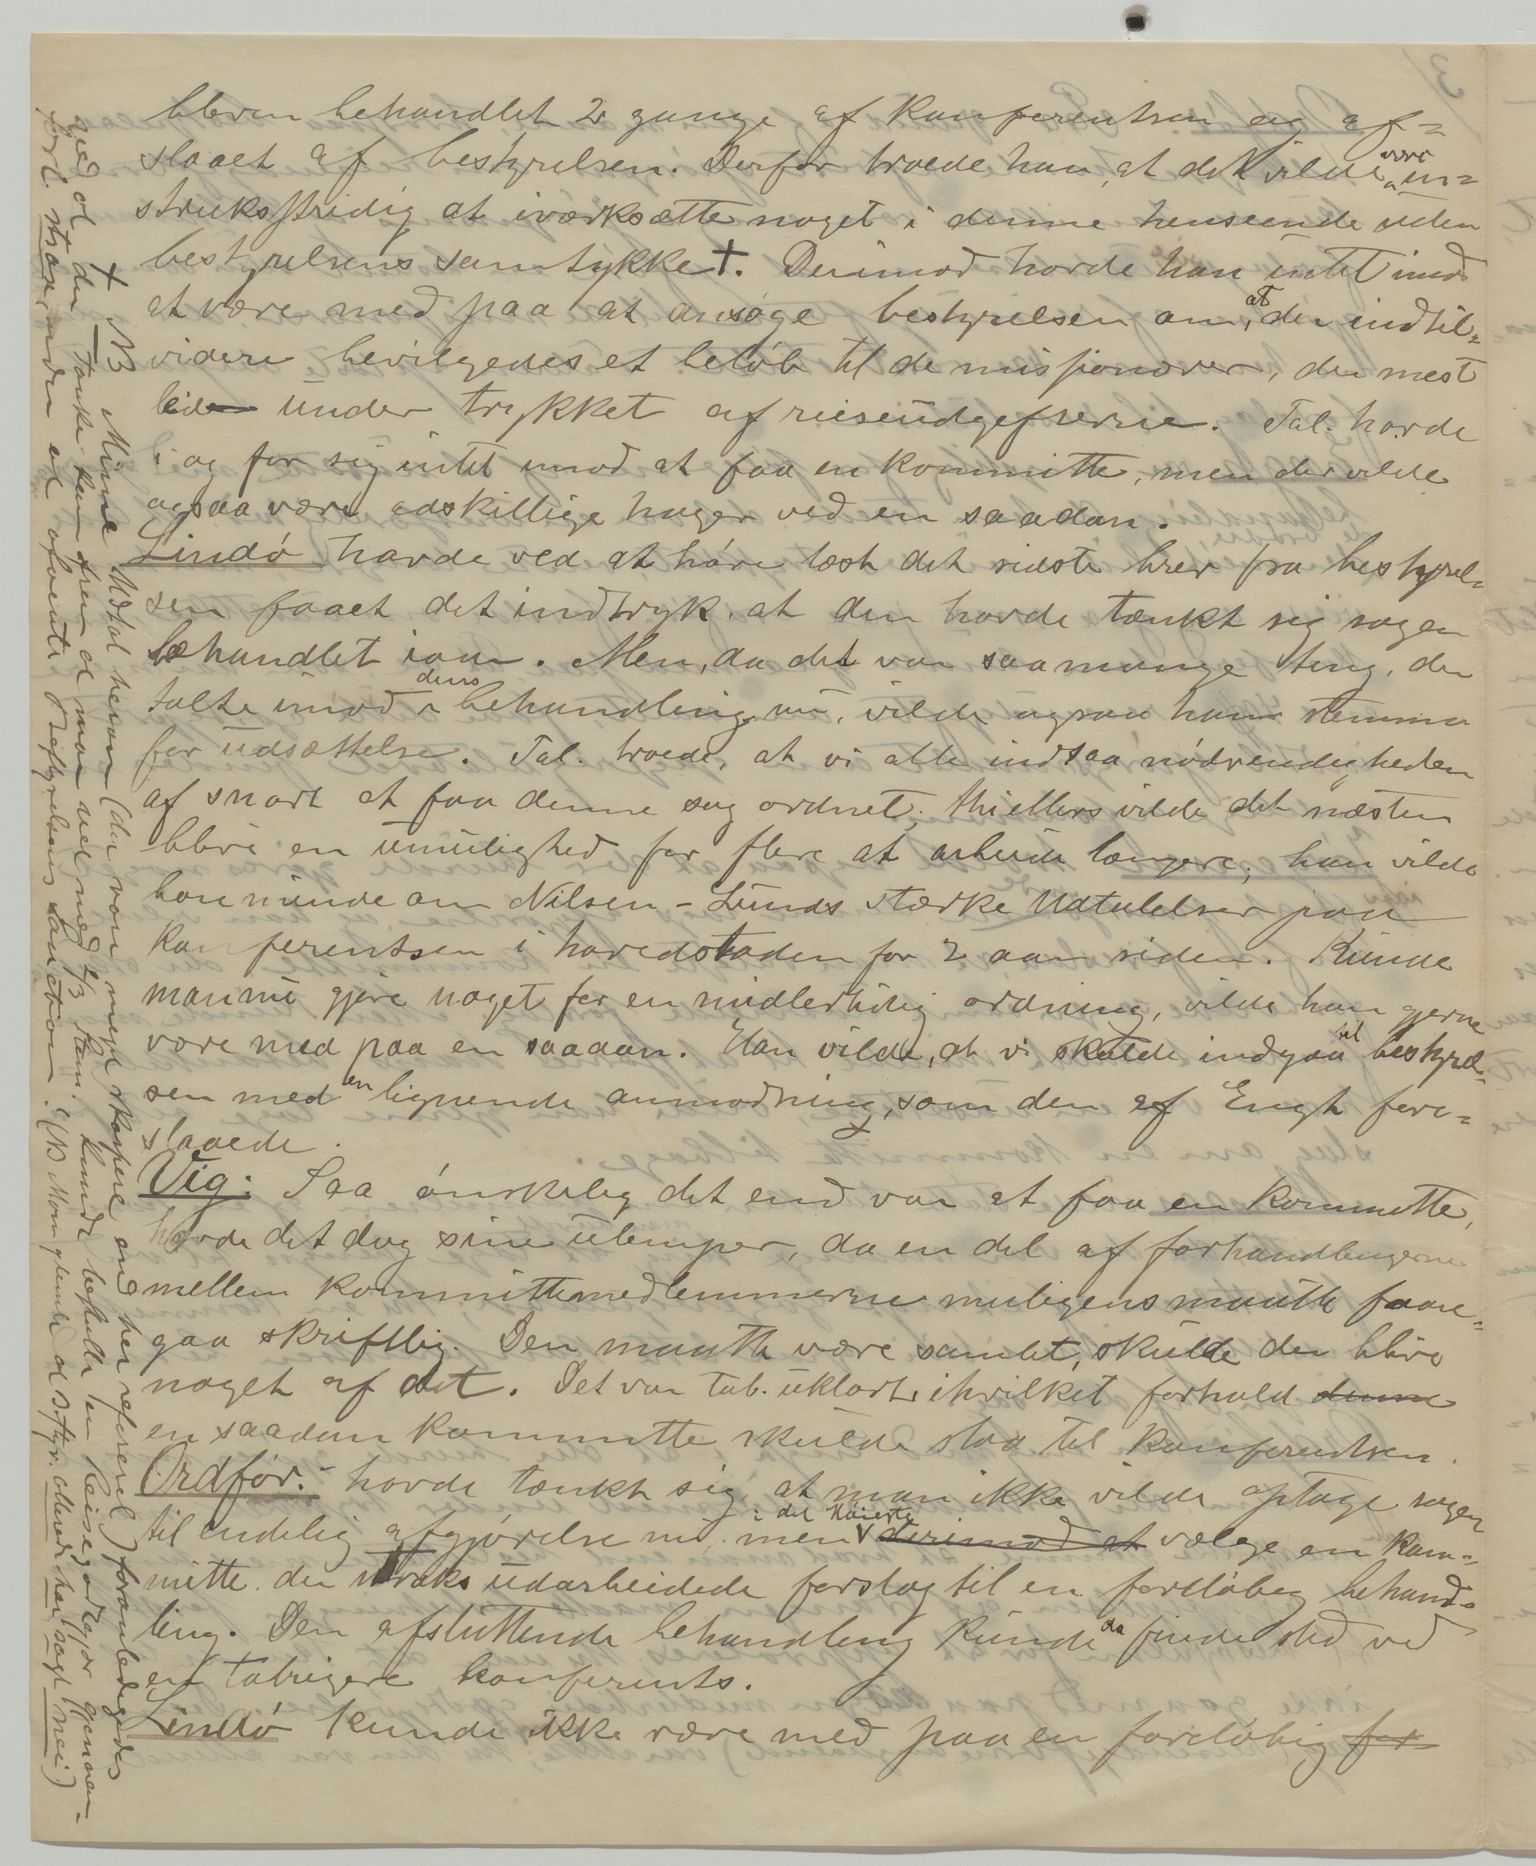 bleven behandlet 2 gange af Konferentsen og af-
slaaet af bestyrelsen. Derfor troede han, at det vilde være in-
struksstridig at iværksætte noget i denne henseende uden
bestyrelsens samtykke +. Derimod havde han intet imod
at være med paa at ansøge bestyrelsen om, at der indtil-
videre bevilgedes et beløb til de missionærer, der mest
led under trykket af reiseudgifterne. Tal. havde
i og for sig intet imod at faa en kommitte, men der vilde
ogsaa være adskillige hager ved en saadan.
Lindø havde ved at høre læst det sidste brev fra bestyrel-
sen faaet det indtryk, at den havde tænkt sig sagen
behandlet iaar. Men, da det var saa mange ting, der
talte imod dens behandling nu, vilde ogsaa han stemme
for udsættelse. Tal. troede, at vi alle indsaa nødvendigheden
af snart at faa denne sag ordnet; thi ellers vilde det næsten
blive en umulighed for flere at arbeide længere; han vilde
bare minde om Nilsen-Lunds stærke Udtalelser paa
Konferentsen i hovedstaden for 2 aar siden. Kunde
man nu gjøre noget for en midlertidig ordning, vilde han gjerne
være med paa en saadan. Han vilde, at vi skulde indgaa til bestyrel-
sen med en lignende anmodning, som den af Engh fore-
slaaede.
Vig: Saa ønskelig det end var at faa en kommitte,
havde det dog sine ulemper, da en del af forhandlingerne
mellem kommittemedlemmerne muligens maatte fore-
gaa skriftlig. Den maatte være samlet, skulde der blive
noget af det. Det var tal. uklart, i hvilket forhold denne
en saadan kommitte skulde staa til Konferentsen.
Ordfør: havde tænkt sig, at man ikke vilde optage sagen
til endelig afgjørelse nu, men i det høieste derimod at vælge en kom-
mitte, der straks udarbeidede forslag til en foreløbig behand-
ling. Den afsluttende behandling kunde da finde sted ved
en talrigere konferents.
Lindø kunde ikke være med paa en foreløbig for
+ NB Minne Udtal herom (der var meget skarpere end her refereret) foranledigedes
ved at den tanke kom frem at man ved med 2/3 stem. kunde beslutte en Reisegodtgjør gjennem-
ført strax, uden at afvente Bestyrelsens Sanction. (NB Man glemte at Styr. allerede har sagt nei)